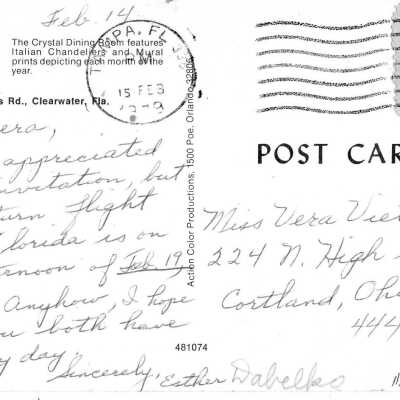 Feb. 14
The Crystal Dining Room features
Italian Chandeliers and Mural
prints depicting each month of the
year.
s Rd., Clearwater, Fla.
TAMPA, FL 335
PM
15 FEB
1979
era,
appreciated
nvitation, but
turn flight
lorida is on
ernoon of Feb 19,
Anyhow, I hope
ou both have
y day."
Sincerely, Esther Dabelko
481074
Action Color Productions, 1500 Poe, Orlando 32806
POST CAR
Miss Vera Vie
224 N. High
Cortland, Ohi
444